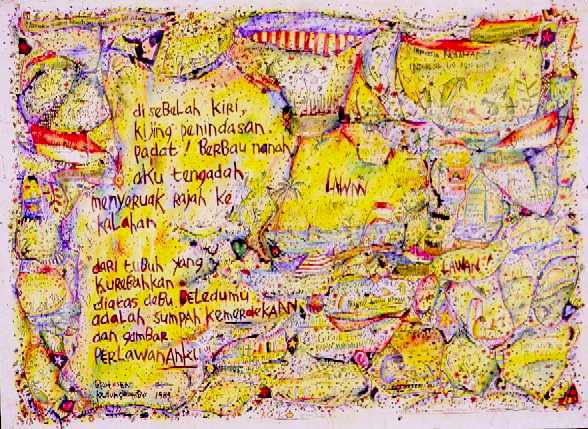 di sebelah kiri,
kijing penindasan
padat! BerBau nanah
aku tengadah
menyeruak rajah ke
kalahan
dari tubuh yang
kurebahkan
diatas debu beledumu
adalah sumpah kemerdekaan
dan gambar
PERLAWANANku
1989
LAWAN
LAWAN!